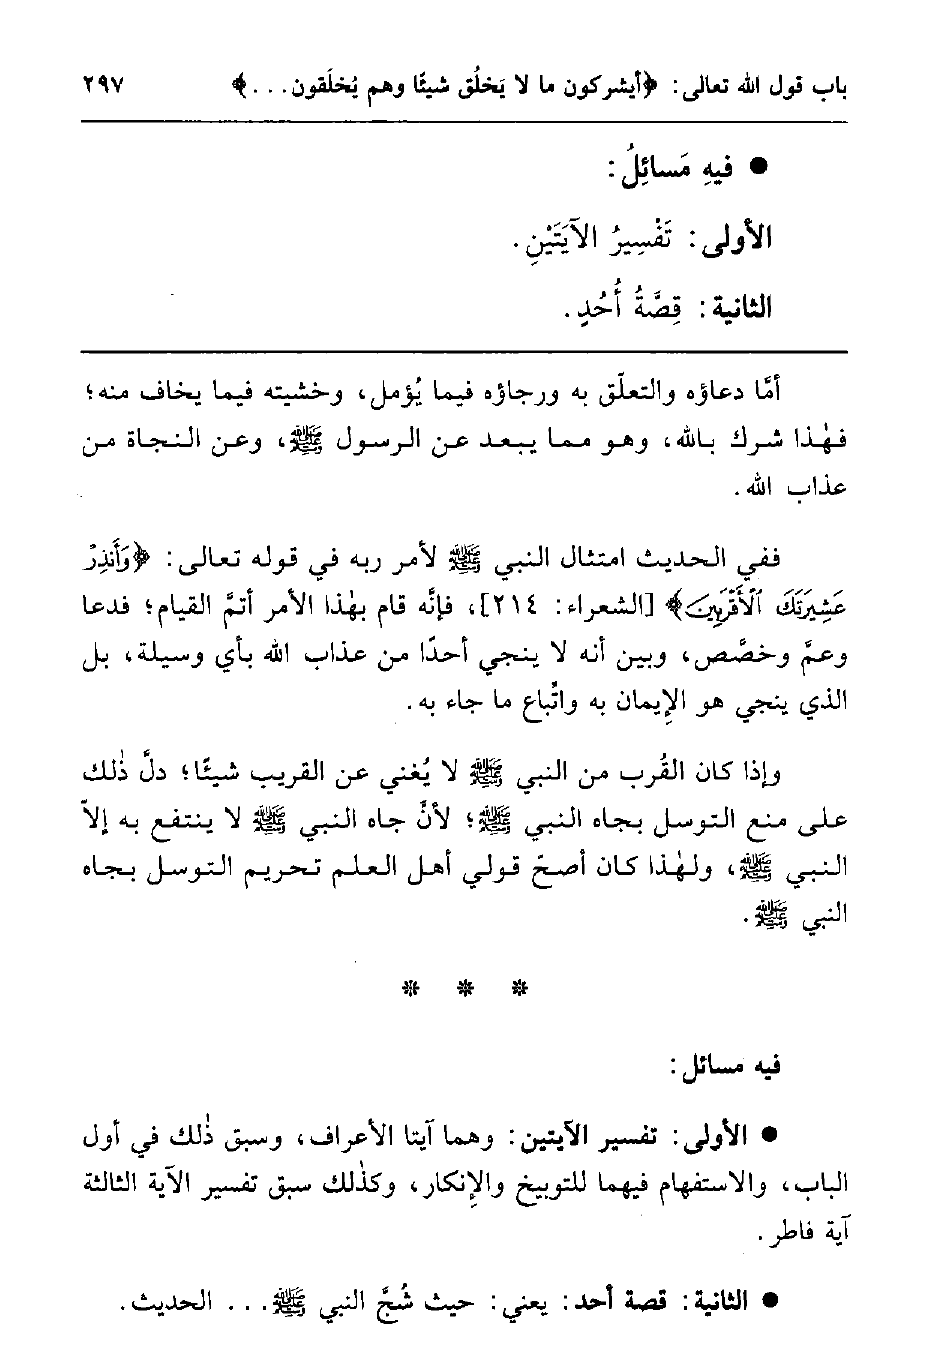 باب قول الله تعالى: ﴿أيشركون ما لا يَخلُق شيئًا وهم يُخلَقون...﴾ ٢٩٧
● فيهِ مَسائِلُ:
الأولى: تَفْسِيرُ الآيَتَيْنِ.
الثانية: قِصَّةُ أُحُدٍ.
أمَّا دعاؤه والتعلّق به ورجاؤه فيما يُؤمل، وخشيته فيما يخاف منه؛
فهٰذا شرك بالله، وهو مما يبعد عن الرسول ﷺ، وعن النجاة من
عذاب الله.
ففي الحديث امتثال النبي ﷺ لأمر ربه في قوله تعالى: ﴿وَأَنذِرْ
عَشِيرَتَكَ ٱلْأَقْرَبِينَ﴾ [الشعراء: ٢١٤]، فإنَّه قام بهٰذا الأمر أتمَّ القيام؛ فدعا
وعمَّ وخصَّص، وبين أنه لا ينجي أحدًا من عذاب الله بأي وسيلة، بل
الذي ينجي هو الإيمان به واتِّباع ما جاء به.
وإذا كان القُرب من النبي ﷺ لا يُغني عن القريب شيئًا؛ دلَّ ذٰلك
على منع التوسل بجاه النبي ﷺ؛ لأنَّ جاه النبي ﷺ لا ينتفع به إلاّ
النبي ﷺ، ولهٰذا كان أصحّ قولي أهل العلم تحريم التوسل بجاه
النبي ﷺ.
* * *
فيه مسائل:
● الأولى: تفسير الآيتين: وهما آيتا الأعراف، وسبق ذٰلك في أول
الباب، والاستفهام فيهما للتوبيخ والإنكار، وكذٰلك سبق تفسير الآية الثالثة
آية فاطر.
● الثانية: قصة أحد: يعني: حيث شُجَّ النبي ﷺ... الحديث.